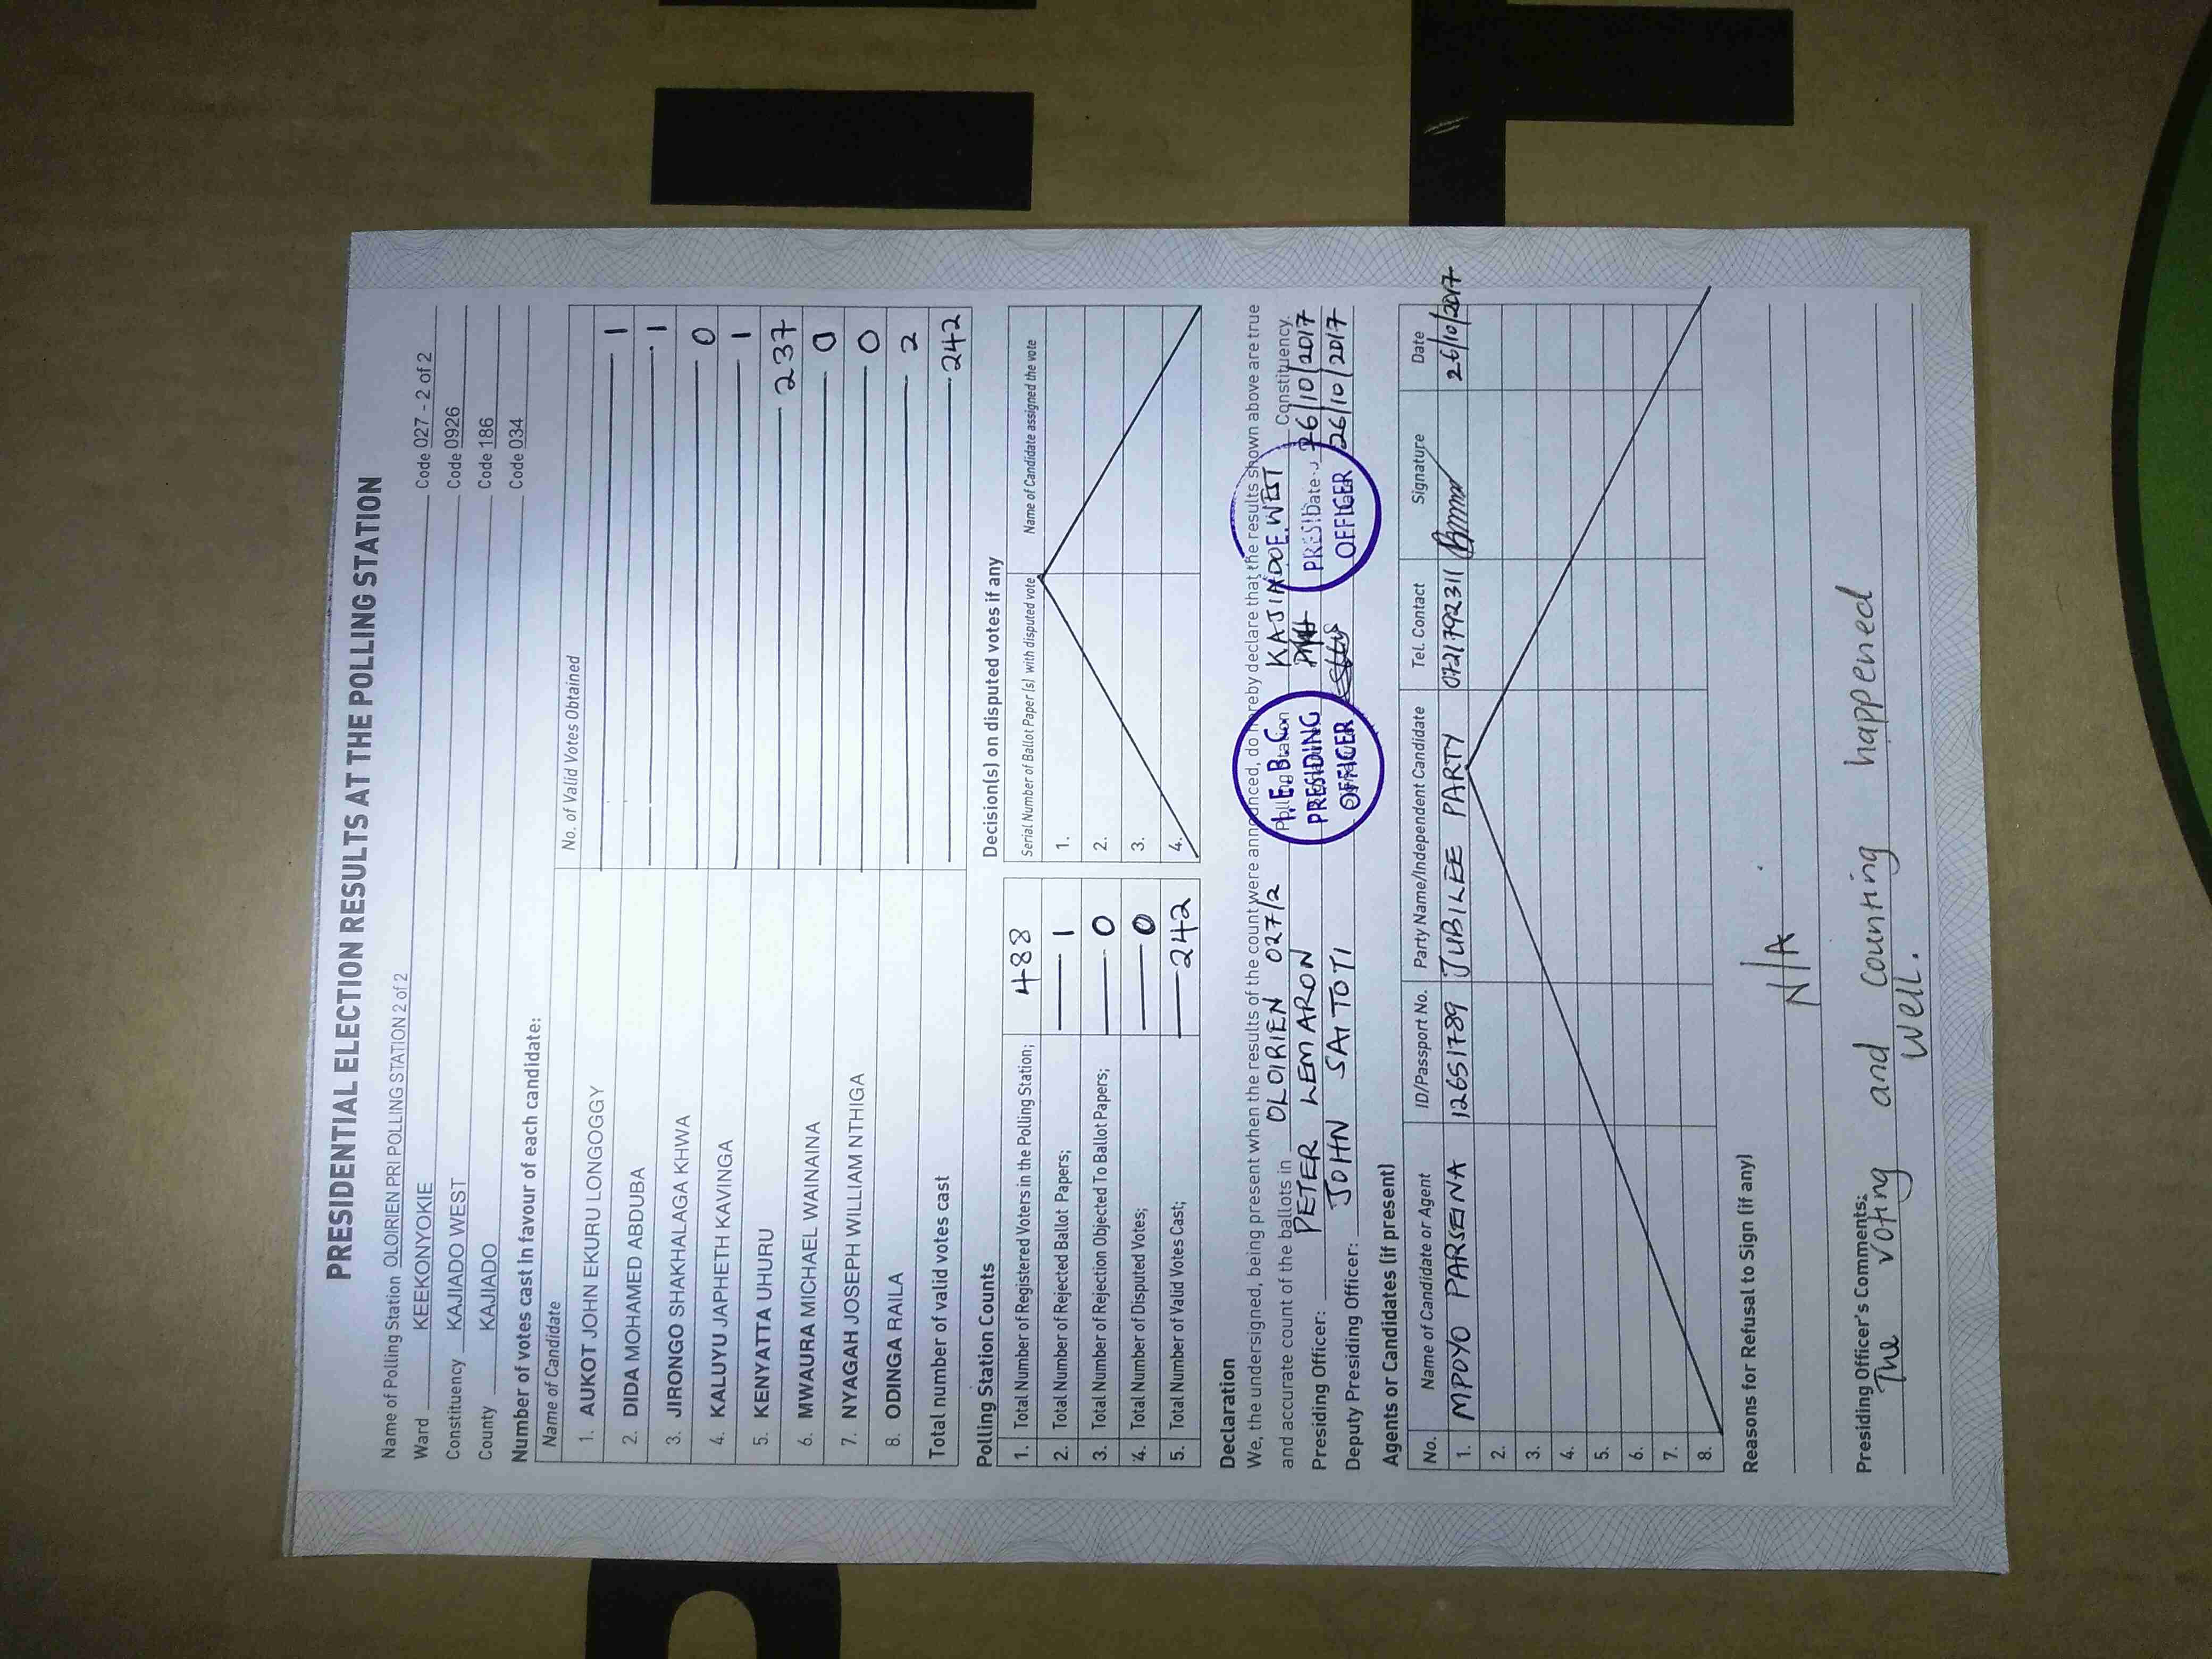 PRESIDENTIAL ELECTION RESULTS AT THE POLLING STATION
Name of Polling Station OLOIRIEN PRI POLLING STATION 2 of 2 Code 027 - 2 of 2
Ward KEEKONYOKIE Code 0926
Constituency KAJIADO WEST Code 186
County KAJIADO Code 034
Number of votes cast in favour of each candidate:
Name of Candidate No. of Valid Votes Obtained
1. AUKOT JOHN EKURU LONGOGGY 1
2. DIDA MOHAMED ABDUBA 1
3. JIRONGO SHAKHALAGA KHWA 0
4. KALUYU JAPHETH KAVINGA 1
5. KENYATTA UHURU 237
6. MWAURA MICHAEL WAINAINA 0
7. NYAGAH JOSEPH WILLIAM NTHIGA 0
8. ODINGA RAILA 2
Total number of valid votes cast 242
Polling Station Counts
1. Total Number of Registered Voters in the Polling Station; 488
2. Total Number of Rejected Ballot Papers; 1
3. Total Number of Rejection Objected To Ballot Papers; 0
4. Total Number of Disputed Votes; 0
5. Total Number of Valid Votes Cast; 242
Decision(s) on disputed votes if any
Serial Number of Ballot Paper (s) with disputed vote Name of Candidate assigned the vote
1.
2.
3.
4.
Declaration
We, the undersigned, being present when the results of the count were announced, do hereby declare that the results shown above are true
and accurate count of the ballots in OLOIRIEN 027/2 Polling Station KAJIADO WEST Constituency.
Presiding Officer: PETER LEMARON Date 26/10/2017
Deputy Presiding Officer: JOHN SAITOTI 26/10/2017
I.E.B.C.
PRESIDING
OFFICER
PRESIDING
OFFICER
Agents or Candidates (if present)
No. Name of Candidate or Agent ID/Passport No. Party Name/Independent Candidate Tel. Contact Signature Date
1. MPOYO PARSEINA 12651789 JUBILEE PARTY 0721792311 26/10/2017
2.
3.
4.
5.
6.
7.
8.
Reasons for Refusal to Sign (if any)
N/A
Presiding Officer's Comments:
The voting and counting happened
well.